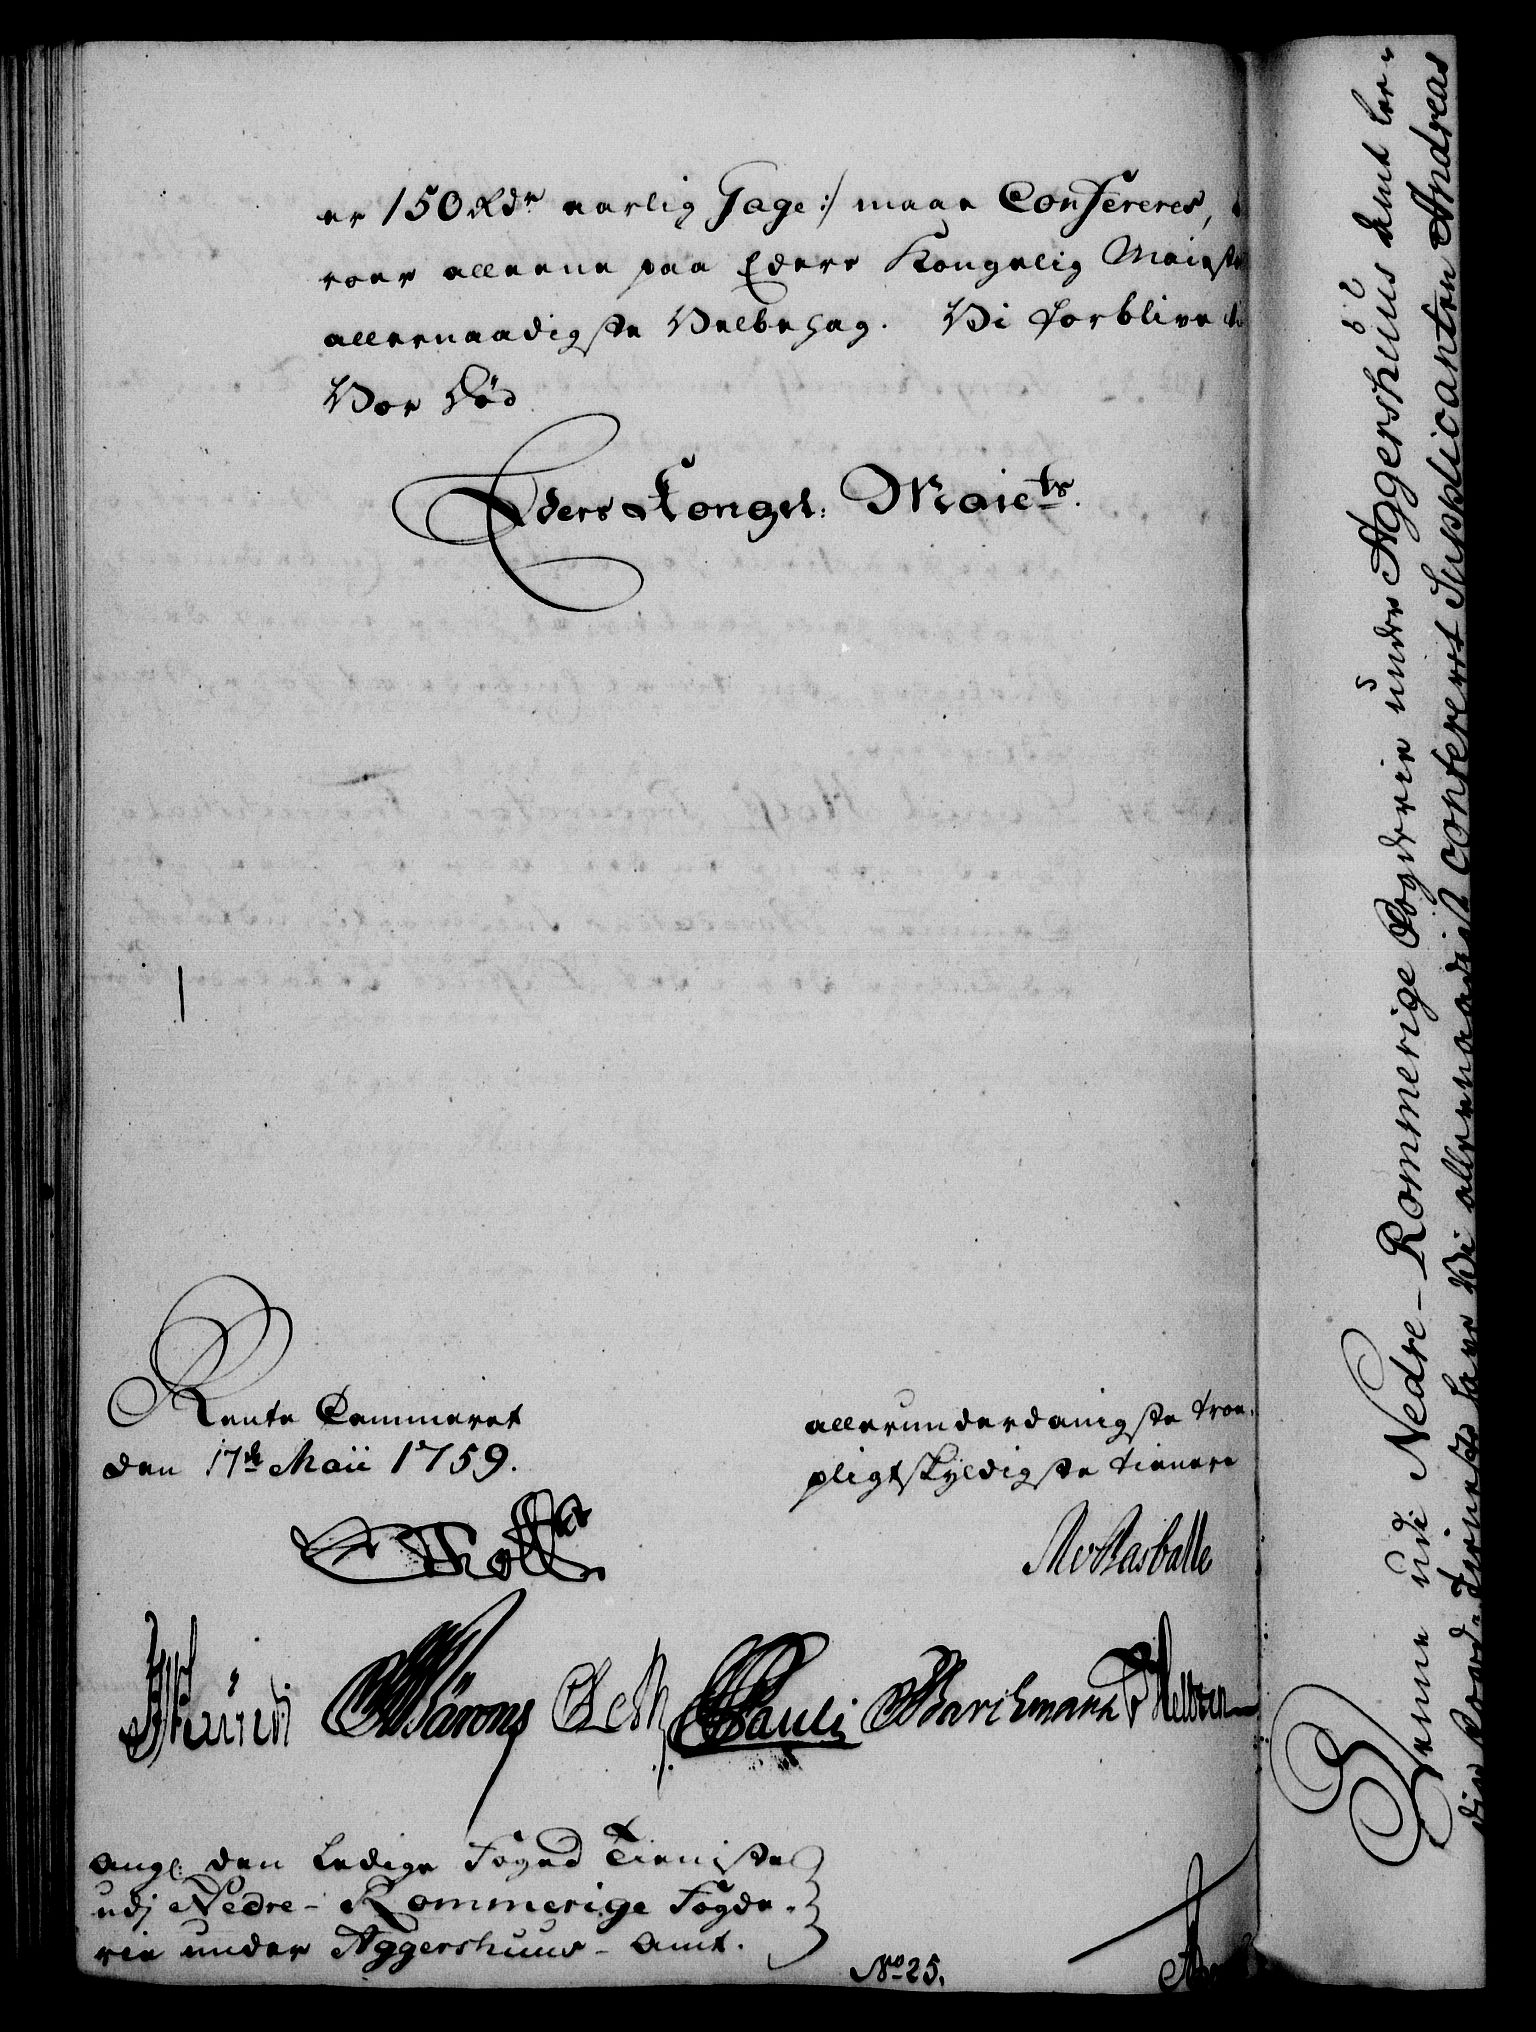 er 150 Rdr aarlig Gage :/ maae Confereres,
roer alleene paa Eders Kongelig Maiestæ
allernaadigste Velbehag. Vi forblive
Vor Död
Eders Kongel: Maiets.
Rente Cammeret
den 17de Maii 1759.
allerunderdanigste troe
pligtskyldigste tienere
Holst
Rasballe
Bärens Leth Pauli Barchmann
angl: den Ledige Foged Tieniste
udj Nedre-Rommerige Fogde-
rie under Aggershuus-Amt.
No 25.
Denne udi Nedre-Rommerige Fogderie under Aggershuus Amt Le-
dig Tieneste have Vi allernaadigst confereret Supplicanten Andreas